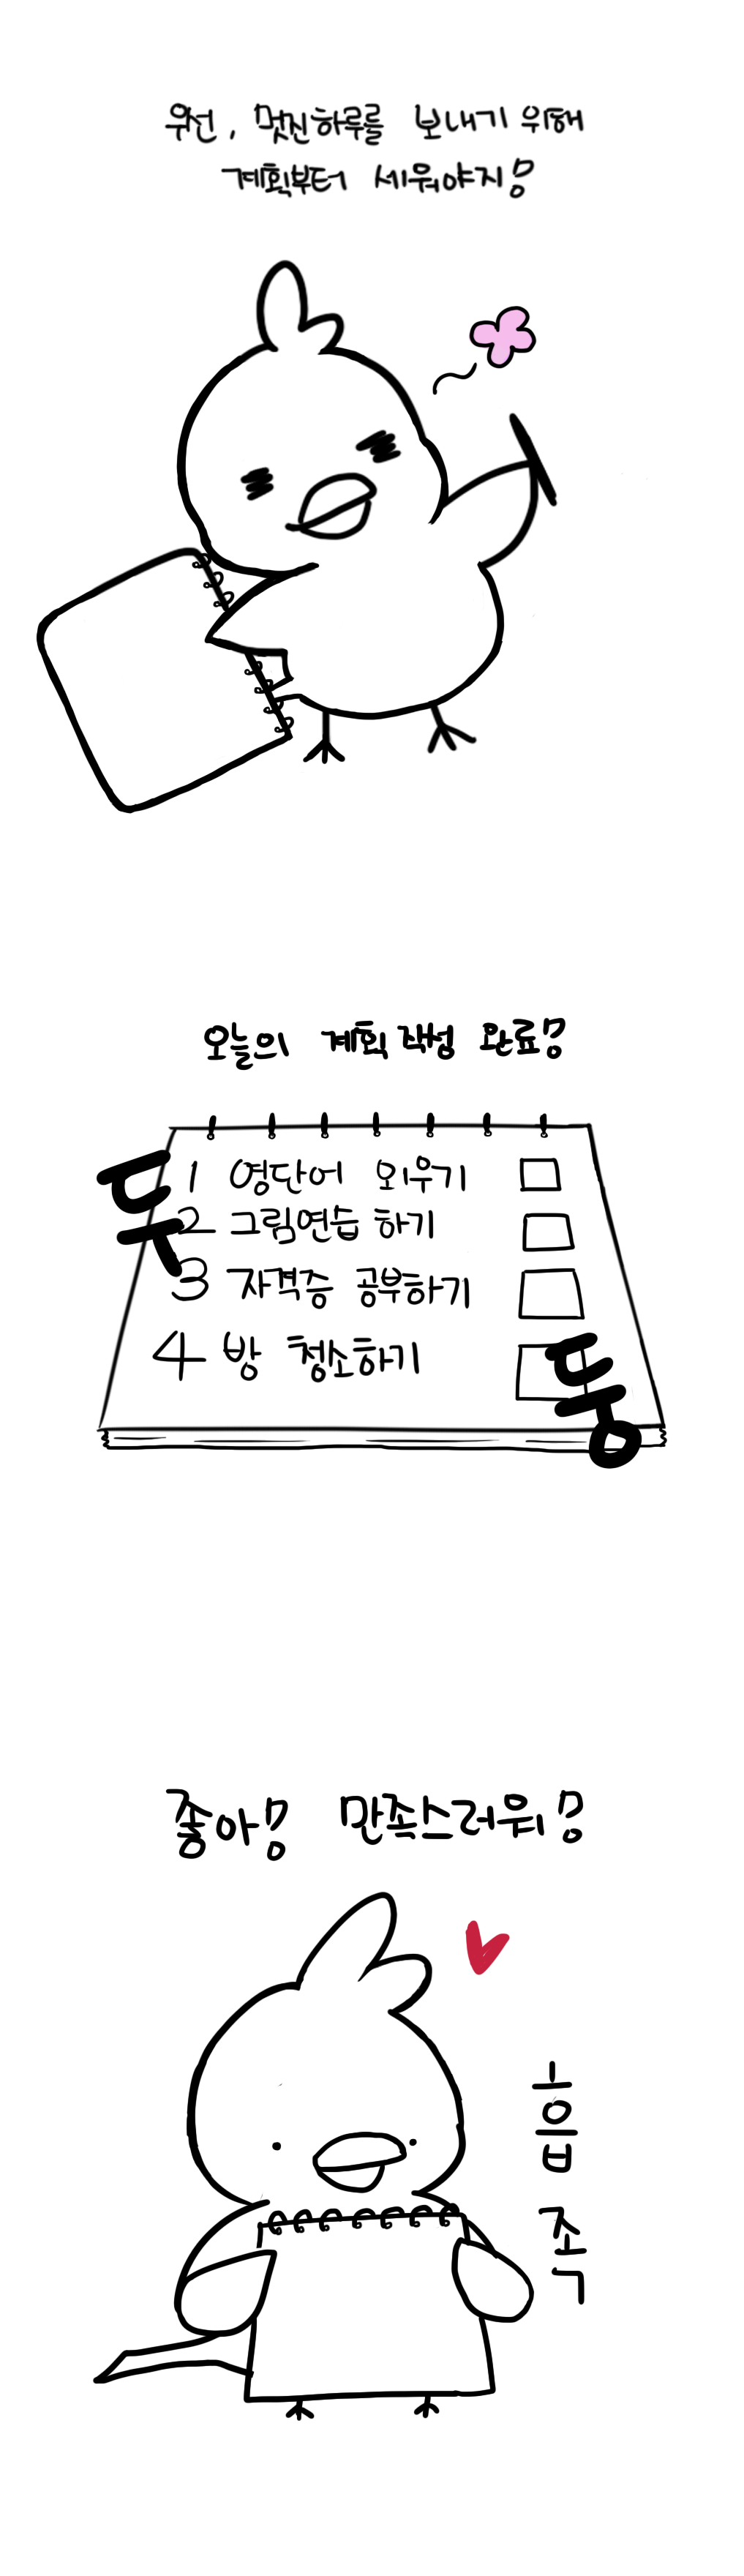 우선, 멋진하루를 보내기 위해
계획부터 세워야지!
오늘의 계획 작성 완료!
두
1 영단어 외우기
2 그림연습 하기
3 자격증 공부하기
4 방 청소하기
둥
좋아! 만족스러워!
흡
족